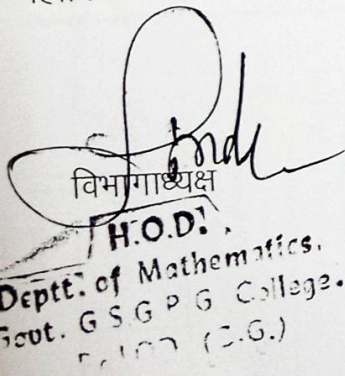 विभागाध्यक्ष
H.O.D.
Deptt. of Mathematics,
Govt. G S G P G College.
(C.G.)